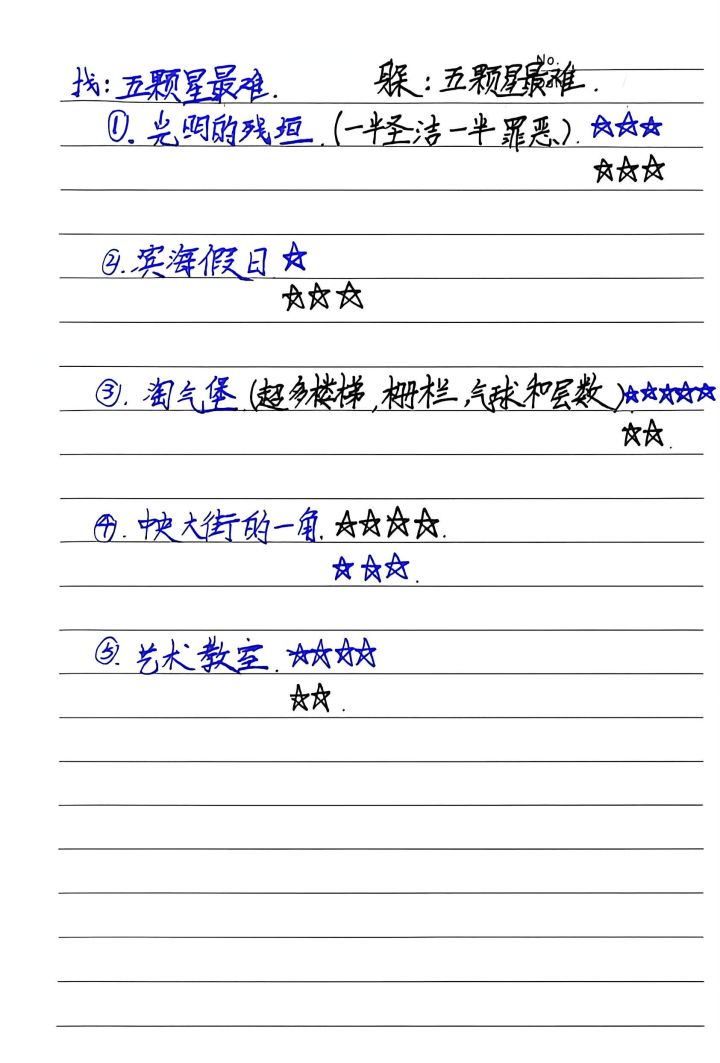 找:五颗星最难. 躲:五颗星最难.
No.
①. 光明的残垣.(一半圣洁一半罪恶). ☆☆☆
☆☆☆
②. 滨海假日 ☆
☆☆☆
③. 淘气堡.(超多楼梯,栅栏,气球和层数).☆☆☆☆☆
☆☆.
④. 中央大街的一角. ☆☆☆☆.
☆☆☆.
⑤. 艺术教室. ☆☆☆☆
☆☆.